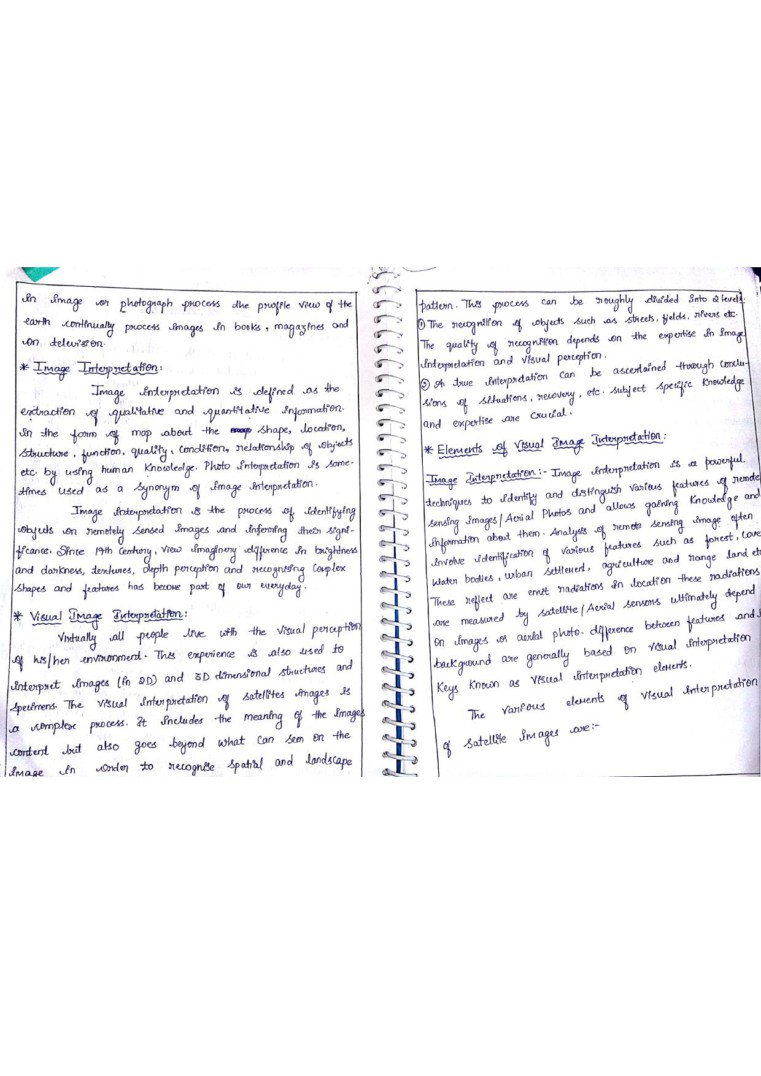 In Image or photograph process the profile view of the
earth continually process images in books, magazines and
on television.
* Image Interpretation:
Image interpretation is defined as the
extraction of qualitative and quantitative information.
In the form of map about the shape, location,
structure, function, quality, condition, relationship of objects
etc. by using human knowledge. Photo interpretation is some-
times used as a synonym of image interpretation.
Image interpretation is the process of identifying
objects on remotely sensed images and inferring their signi-
ficance. Since 19th Century, view imaginery difference in brightness
and darkness, textures, depth perception and recognising complex
shapes and features has become part of our everyday.
* Visual Image Interpretation:
Virtually all people live with the visual perception
of his/her environment. This experience is also used to
interpret images (in 2D) and 3D dimensional structures and
specimens. The visual interpretation of satellites images is
a complex process. It includes the meaning of the images
content but also goes beyond what can seen on the
image in order to recognise spatial and landscape
pattern. This process can be roughly divided into 2 levels:
① The recognition of objects such as streets, fields, rivers etc.
The quality of recognition depends on the expertise in image
interpretation and visual perception.
② A true interpretation can be ascertained through conclu-
sions of situations, recovery, etc. subject specific knowledge
and expertise are crucial.
* Elements of Visual Image Interpretation:
Image Interpretation:- Image interpretation is a powerful
techniques to identify and distinguish various features of remote
sensing images/Aerial Photos and allows gaining knowledge and
information about them. Analysis of remote sensing image often
involve identification of various features such as forest,
water bodies, urban settlement, agriculture and range land etc
These reflect are emit radiations in location these radiations
are measured by satellite/Aerial sensors ultimately depend
on images or aerial photo. difference between features and
background are generally based on visual interpretation
keys known as visual interpretation elements.
The various elements of visual interpretation
of satellite images are:-